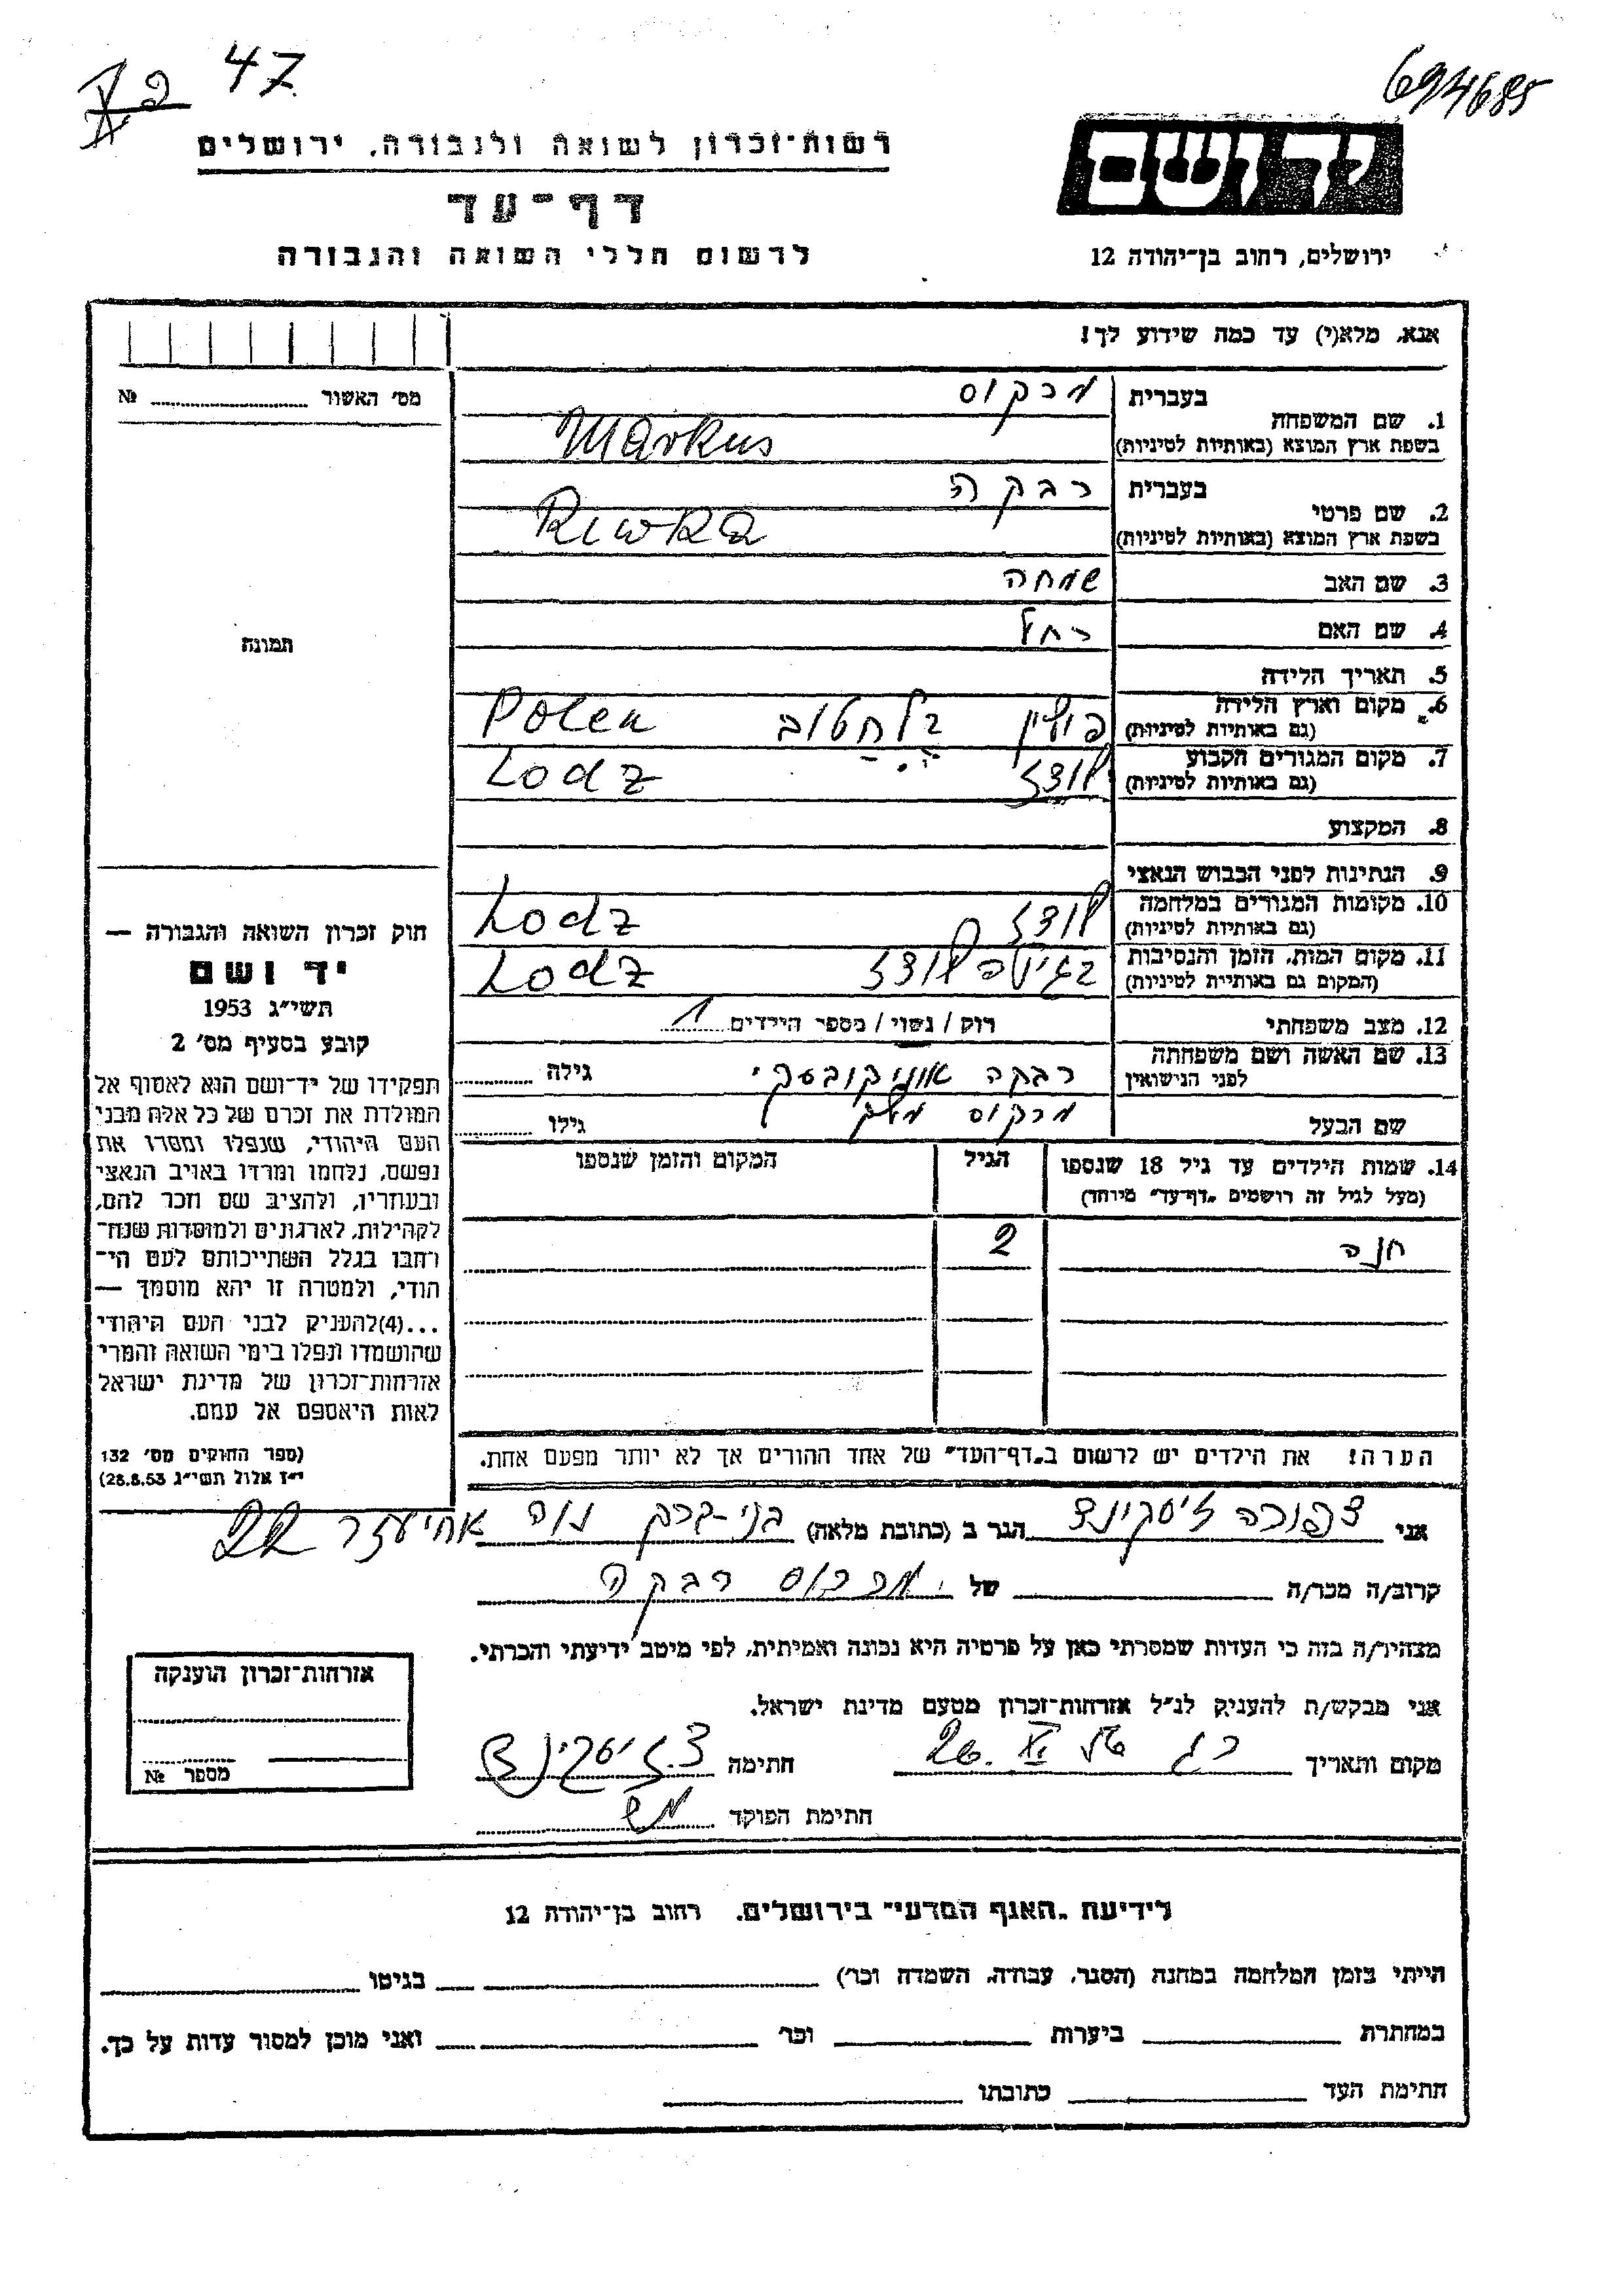 47
694685
רשות־זכרון לשואה ולגבורה, ירושלים
דף־עד
לרשום חללי השואה והגבורה
יד ושם
ירושלים, רחוב בן־יהודה 12
אנא, מלא(י) עד כמה שידוע לך!
מס׳ האשור № 
1. שם המשפחה
בעברית מרקוס
בשפת ארץ המוצא (באותיות לטיניות) Markus
2. שם פרטי
בעברית רבקה
בשפת ארץ המוצא (באותיות לטיניות) Riwka
3. שם האב שמחה
4. שם האם רחל
תמונה
5. תאריך הלידה
6. מקום וארץ הלידה
(גם באותיות לטיניות) פולין בלחטוב Polen
7. מקום המגורים הקבוע
(גם באותיות לטיניות) לודז Lodz
8. המקצוע
9. הנתינות לפני הכבוש הנאצי
10. מקומות המגורים במלחמה
(גם באותיות לטיניות) לודז Lodz
11. מקום המות, הזמן והנסיבות
(המקום גם באותיית לטיניות) בגיטו לודז Lodz
12. מצב משפחתי רוק / נשוי / מספר הילדים 1
13. שם האשה ושם משפחתה
לפני הנישואין רבקה גילה
שם הבעל מרקוס גילו
14. שמות הילדים עד גיל 18 שנספו
(מעל לגיל זה רושמים „דף־עד״ מיוחד)
הגיל
המקום והזמן שנספו
חנה 2
חוק זכרון השואה והגבורה —
יד ושם
תשי״ג 1953
קובע בסעיף מס׳ 2
תפקידו של יד־ושם הוא לאסוף אל
המולדת את זכרם של כל אלה מבני
העם היהודי, שנפלו ומסרו את
נפשם, נלחמו ומרדו באויב הנאצי
ובעוזריו, ולהציב שם וזכר להם,
לקהילות, לארגונים ולמוסדות שנח־
רחבו בגלל השתייכותם לעם הי־
הודי, ולמטרה זו יהא מוסמך —
...(4)להעניק לבני העם היהודי
שהושמדו ונפלו בימי השואה והמרי
אזרחות־זכרון של מדינת ישראל
לאות היאספם אל עמם.
(ספר החוקים מס׳ 132
י״ז אלול תשי״ג 28.8.53)
הערה! את הילדים יש לרשום ב„דף־העד״ של אחד ההורים אך לא יותר מפעם אחת.
אני צפורה זיסקינד הגר ב (כתובת מלאה) בני-ברק נוה אחיעזר 22
קרוב/ה מכר/ה של מרקוס רבקה
מצהיר/ה בזה כי העדות שמסרתי כאן על פרטיה היא נכונה ואמיתית, לפי מיטב ידיעתי והכרתי.
אני מבקש/ת להעניק לנ״ל אזרחות־זכרון מטעם מדינת ישראל.
מקום ותאריך חתימה צ. זיסקינד
חתימת הפוקד
אזרחות־זכרון הוענקה
מספר №
לידיעת „האגף המדעי״ בירושלים. רחוב בן־יהודת 12
הייתי בזמן המלחמה במחנה (הסגר, עבודה, השמדה וכר׳) בגיטו
במחתרת ביערות וכר׳ ואני מוכן למסור עדות על כך.
חתימת העד כתובתו